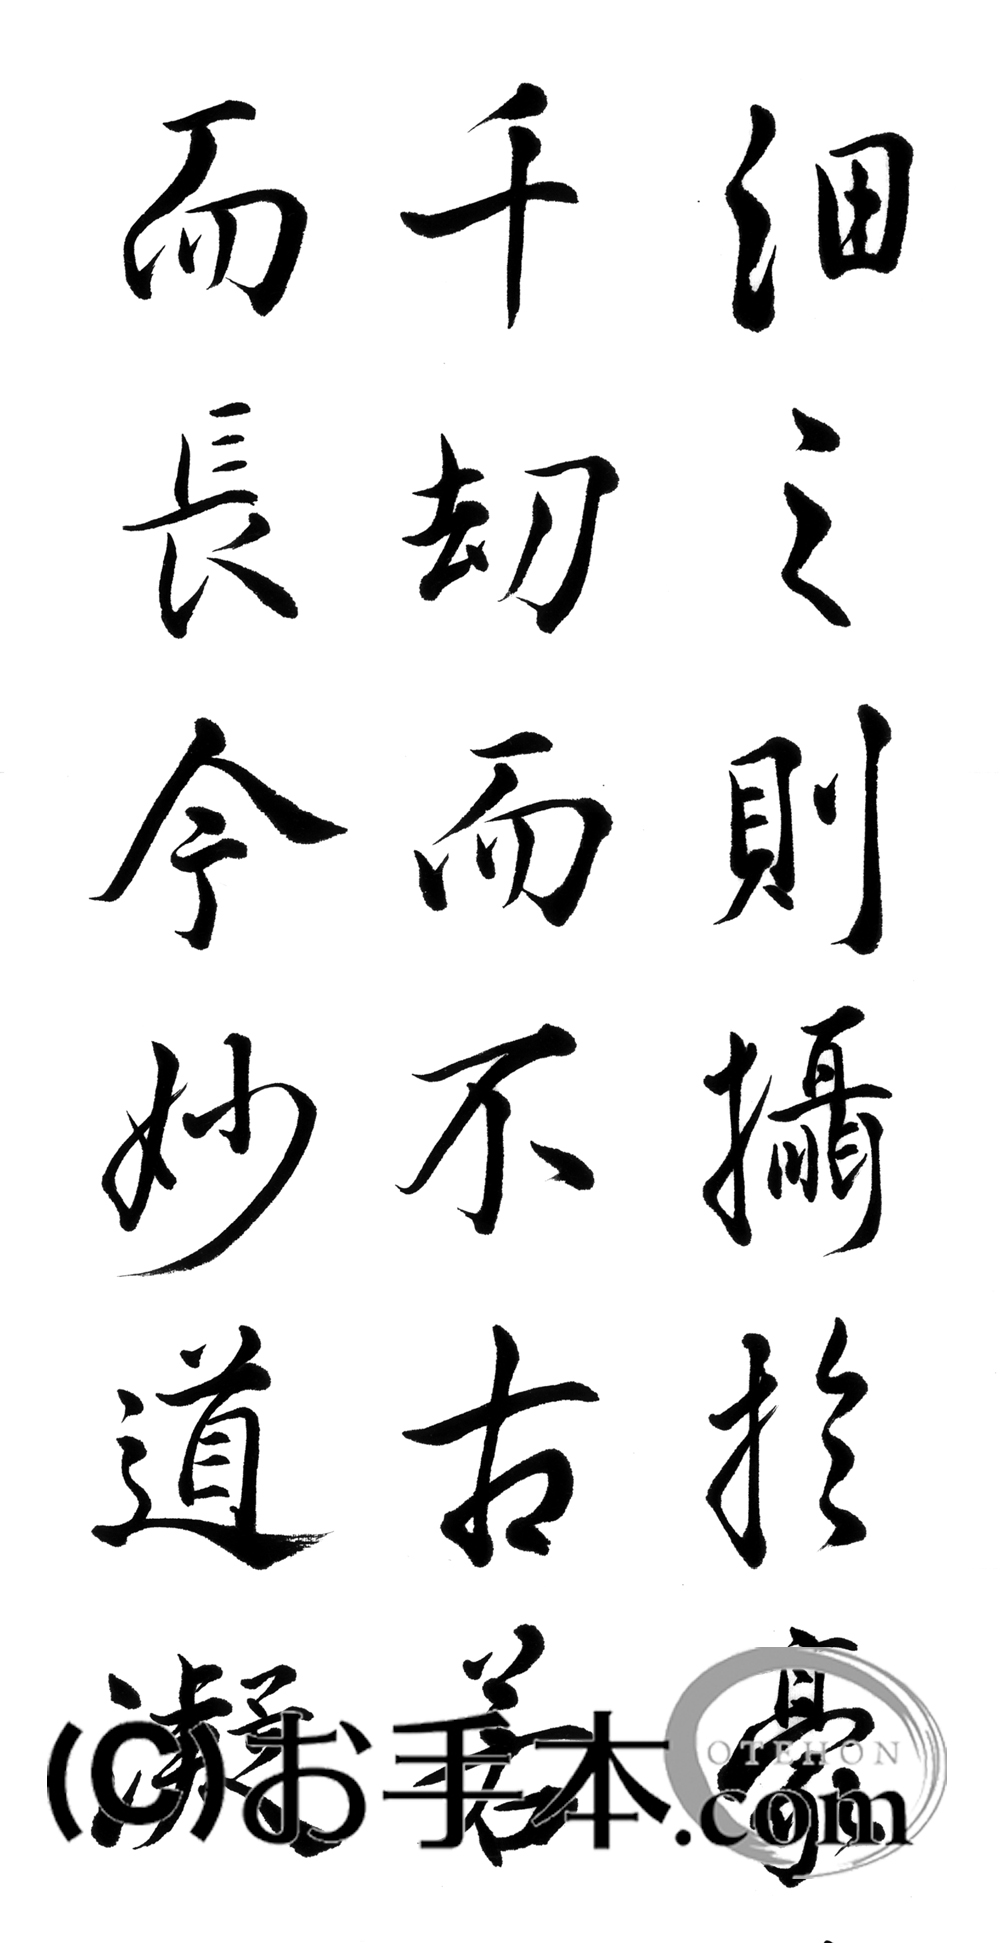 細之則攝於豪
千劫而不古若
而長今妙道凝
(C)お手本.com
OTEHON